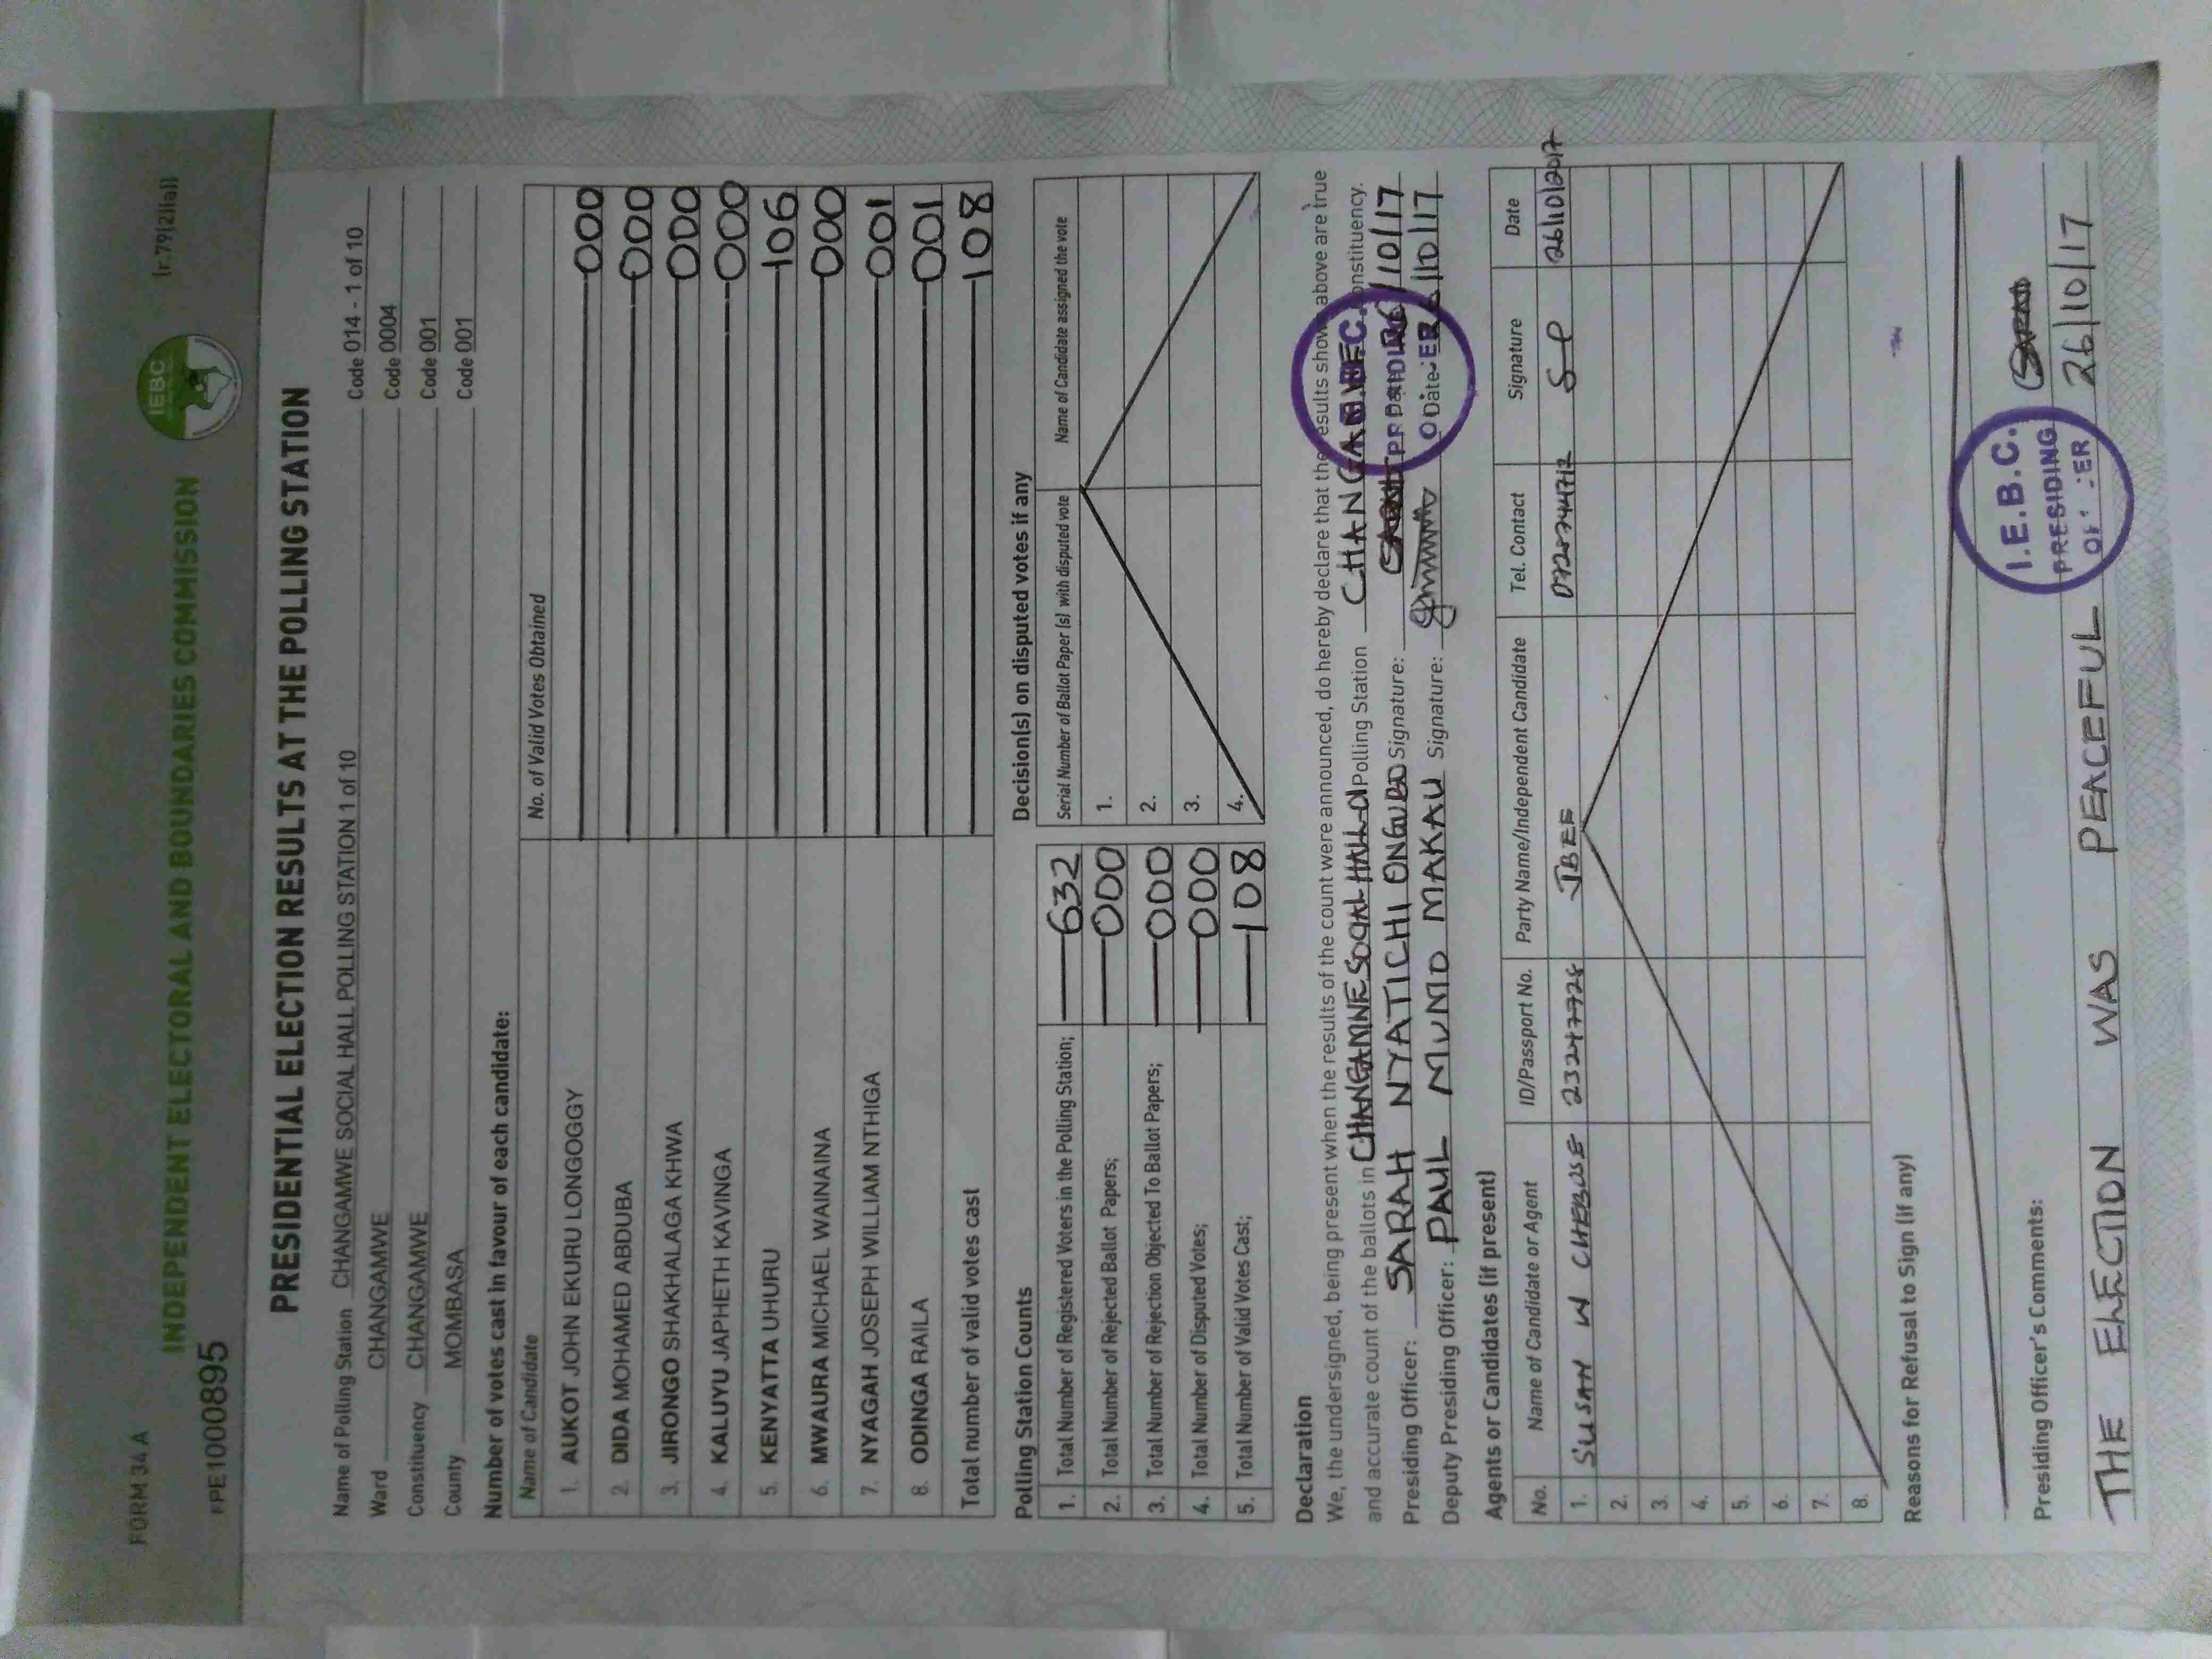 FORM 34 A
(r.79(2)(a))
IEBC
INDEPENDENT ELECTORAL AND BOUNDARIES COMMISSION
FPE1000895
PRESIDENTIAL ELECTION RESULTS AT THE POLLING STATION
Name of Polling Station CHANGAMWE SOCIAL HALL POLLING STATION 1 of 10 Code 014 - 1 of 10
Ward CHANGAMWE Code 0004
Constituency CHANGAMWE Code 001
County MOMBASA Code 001
Number of votes cast in favour of each candidate:
Name of Candidate No. of Valid Votes Obtained
1. AUKOT JOHN EKURU LONGOGGY 000
2. DIDA MOHAMED ABDUBA 000
3. JIRONGO SHAKHALAGA KHWA 000
4. KALUYU JAPHETH KAVINGA 000
5. KENYATTA UHURU 106
6. MWAURA MICHAEL WAINAINA 000
7. NYAGAH JOSEPH WILLIAM NTHIGA 001
8. ODINGA RAILA 001
Total number of valid votes cast 108
Polling Station Counts
1. Total Number of Registered Voters in the Polling Station; 632
2. Total Number of Rejected Ballot Papers; 000
3. Total Number of Rejection Objected To Ballot Papers; 000
4. Total Number of Disputed Votes; 000
5. Total Number of Valid Votes Cast; 108
Decision(s) on disputed votes if any
Serial Number of Ballot Paper (s) with disputed vote Name of Candidate assigned the vote
1.
2.
3.
4.
Declaration
We, the undersigned, being present when the results of the count were announced, do hereby declare that the results show above are true
and accurate count of the ballots in CHANGAMWE SOCIAL HALL 01 Polling Station Constituency.
Presiding Officer: SARAH NYATICHI ONGUBO Signature: /10/17
Deputy Presiding Officer: PAUL MUMO MAKAU Signature: Date: /10/17
I.E.B.C.
PRESIDING
Agents or Candidates (if present)
No. Name of Candidate or Agent ID/Passport No. Party Name/Independent Candidate Tel. Contact Signature Date
1. SUSAN W CHEBUSE JBEE 26/10/2017
2.
3.
4.
5.
6.
7.
8.
Reasons for Refusal to Sign (if any)
Presiding Officer's Comments:
I.E.B.C.
PRESIDING
THE ELECTION WAS PEACEFUL 26/10/17